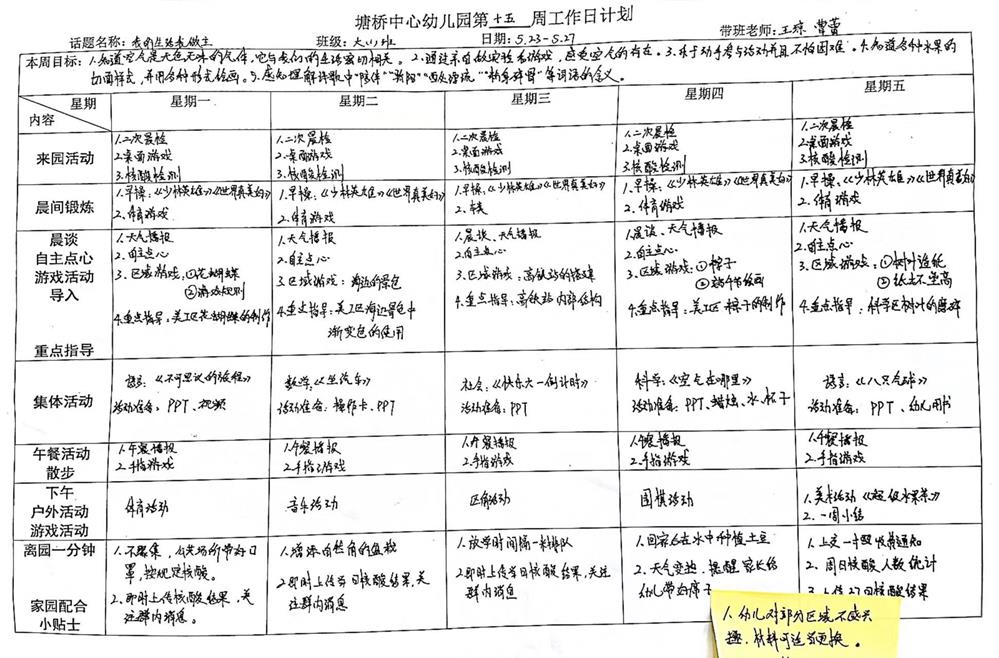 塘桥中心幼儿园第十五周工作日计划
话题名称：我的生活我做主 班级：大(1)班 日期：5.23-5.27 带班老师：王琼 曹蕾
本周目标：1.知道空气是无色无味的气体，它与我们的生活密切相关。2.通过亲自做实验和游戏，感受空气的存在。3.乐于动手参与活动并且不怕困难。4.知道各种水果的
切面样式，并用各种形式绘画。5.感知理解诗歌中
星期 星期一 星期二 星期三 星期四 星期五
内容
来园活动
1.二次晨检 1.二次晨检 1.二次晨检 1.二次晨检 1.二次晨检
2.桌面游戏 2.桌面游戏 2.桌面游戏 2.桌面游戏 2.桌面游戏
3.核酸检测 3.核酸检测 3.核酸检测 3.核酸检测 3.核酸检测
晨间锻炼
1.早操：《少林英雄》《世界真美好》 1.早操：《少林英雄》《世界真美好》 1.早操：《少林英雄》《世界真美好》 1.早操：《少林英雄》《世界真美好》 1.早操：《少林英雄》《世界真美好》
2.体育游戏 2.体育游戏 2. 2.体育游戏 2.体育游戏
晨谈
自主点心
游戏活动
导入
重点指导
1.天气播报 1.天气播报 1.晨谈、天气播报 1.晨谈、天气播报 1.天气播报
2.自主点心 2.自主点心 2.自主点心 2.自主点心 2.自主点心
3.区域游戏：①花蝴蝶 3.区域游戏：海边的景色 3.区域游戏：高铁站的搭建 3.区域游戏：①粽子 3.区域游戏：①树叶造纸
②游戏规则 ②端午节绘画 ②纸上不坐高
4.重点指导：美工区花蝴蝶的制作 4.重点指导：美工区海边景色中 4.重点指导：高铁站内部结构 4.重点指导：美工区粽子的制作 4.重点指导：科学区树叶的磨碎
渐变色的使用
集体活动
语言：《不可思议的旅程》 数学：《坐汽车》 社会：《快乐六一倒计时》 科学：《空气在哪里》 语言：《八只气球》
活动准备：PPT、视频 活动准备：操作卡、PPT 活动准备：PPT 活动准备：PPT、蜡烛、水、杯子 活动准备：PPT、幼儿用书
午餐活动
散步
1.午餐播报 1.午餐播报 1.午餐播报 1.午餐播报 1.午餐播报
2.手指游戏 2.手指游戏 2.手指游戏 2.手指游戏 2.手指游戏
下午
户外活动
游戏活动
体育活动 音乐活动 区角活动 围棋活动 1.美术活动《超级水果茶》
2.一周小结
离园一分钟
家园配合
小贴士
1.不聚集，公共场所带好口
罩，按规定核酸。
2.即时上传核酸结果，关
注群内消息。
1.增添自然角的植被
2.即时上传当日核酸结果，关
注群内消息
1.放学时间隔一米排队
2.即时上传当日核酸结果，关注
群内消息
1.回家后在水中种植土豆
2.天气变热，提醒家长给
幼儿带好席子
1.上交一中暨收费通知
2.周日核酸人数统计
3.上传27日核酸结果
1.幼儿对部分区域不感兴
趣，材料可适当更换。